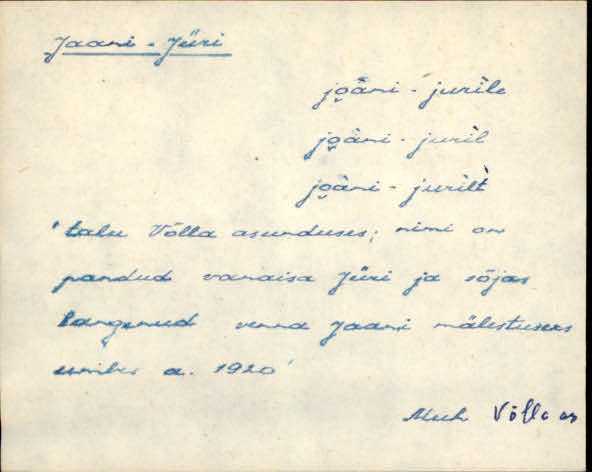 Jaani-Jüri
jo̭ăni-juri̬le
jo̭ăni-juri̬l
jo̭ăni-juri̬lt
'talu Võlla asunduses; nimi on
pandud vanaisa Jüri ja sõjas
langenud venna Jaani mälestuseks
umbes a. 1920'
Muh Võlla as